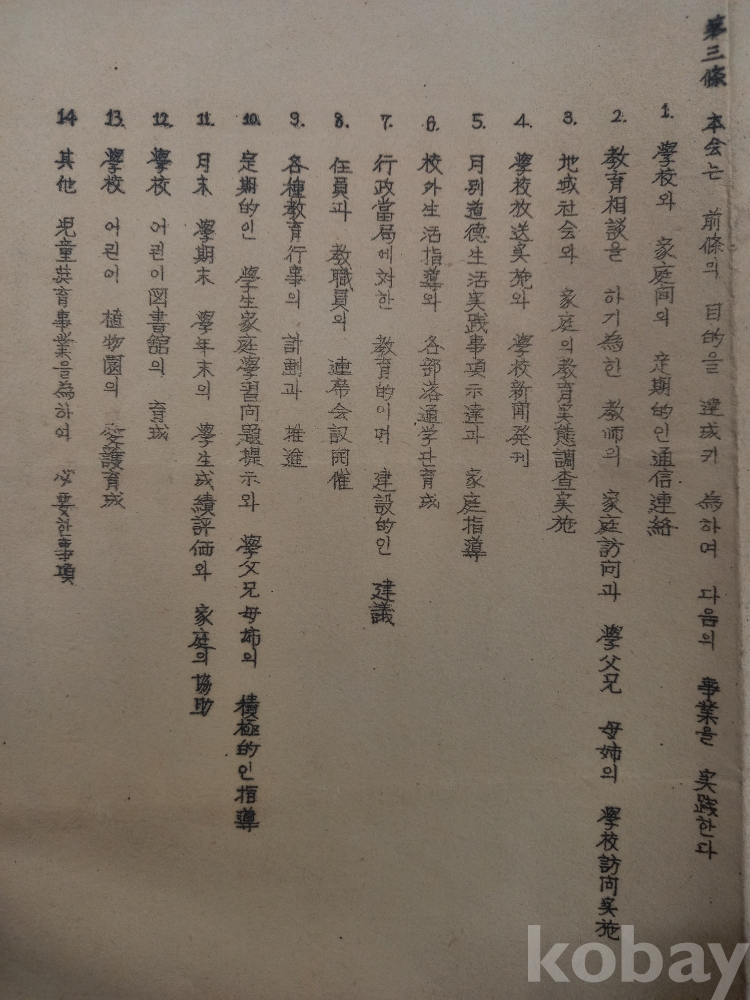 第三條 本会는 前條의 目的을 達成키 為하여 다음의 事業을 実践한다
1. 學校와 家庭间의 定期的인 通信連絡
2. 教育相談을 하기 為한 教师의 家庭訪问과 學父兄 母姉의 學校訪问実施
3. 地域社会와 家庭의 教育実態調查実施
4. 學校放送実施와 學校新聞発刊
5. 月別道德生活実践事項示達과 家庭指導
6. 校外生活指導와 各部落通学団育成
7. 行政當局에 対한 教育的이며 建設的인 建議
8. 任員과 教職員의 連席会议 開催
9. 各種教育行事의 計劃과 推進
10. 定期的인 學生家庭學習问題提示와 學父兄母姉의 積極的인 指導
11. 月末 學期末 學年末의 學生成績評価와 家庭의 協助
12. 學校 어린이 図書館의 育成
13. 學校 어린이 植物園의 愛護育成
14 其他 児童英育事業을 為하여 必要한 事項
kobay